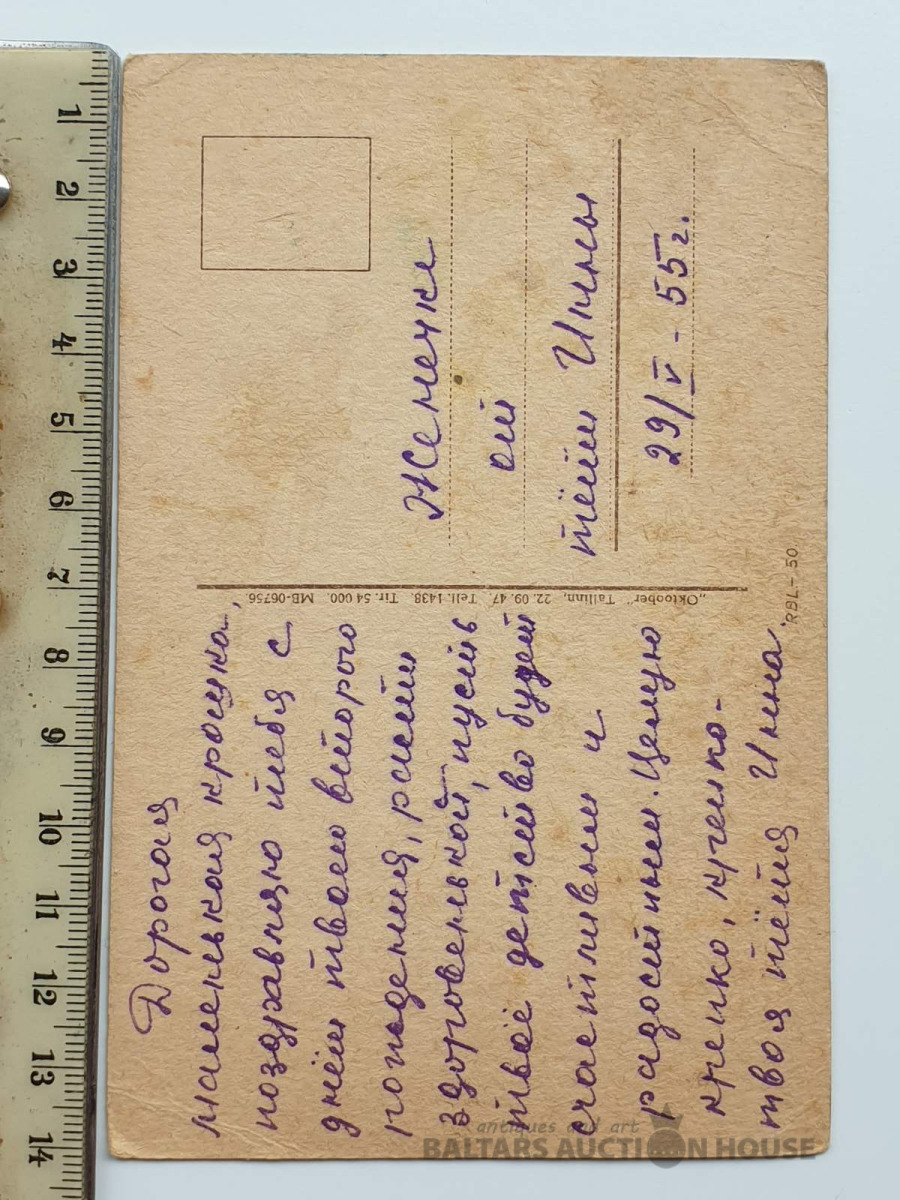 Дорогая
маленькая крошка,
поздравляю тебя с
днём твоего второго
рождения, расти
здоровенькой, пусть
твоё детство будет
счастливым и
радостным. Целую
крепко, крепко-
крепко,
твоя тётя Инна.
"Oktoober" Tallinn, 22.09.47. Tell. 1438. Tir. 54 000. MB-06756
RBL-50
Женечке
от
тёти Инны
29/V - 55г.
1
2
3
4
5
6
7
8
9
10
11
12
13
14
antiques and art
BALTARS AUCTION HOUSE